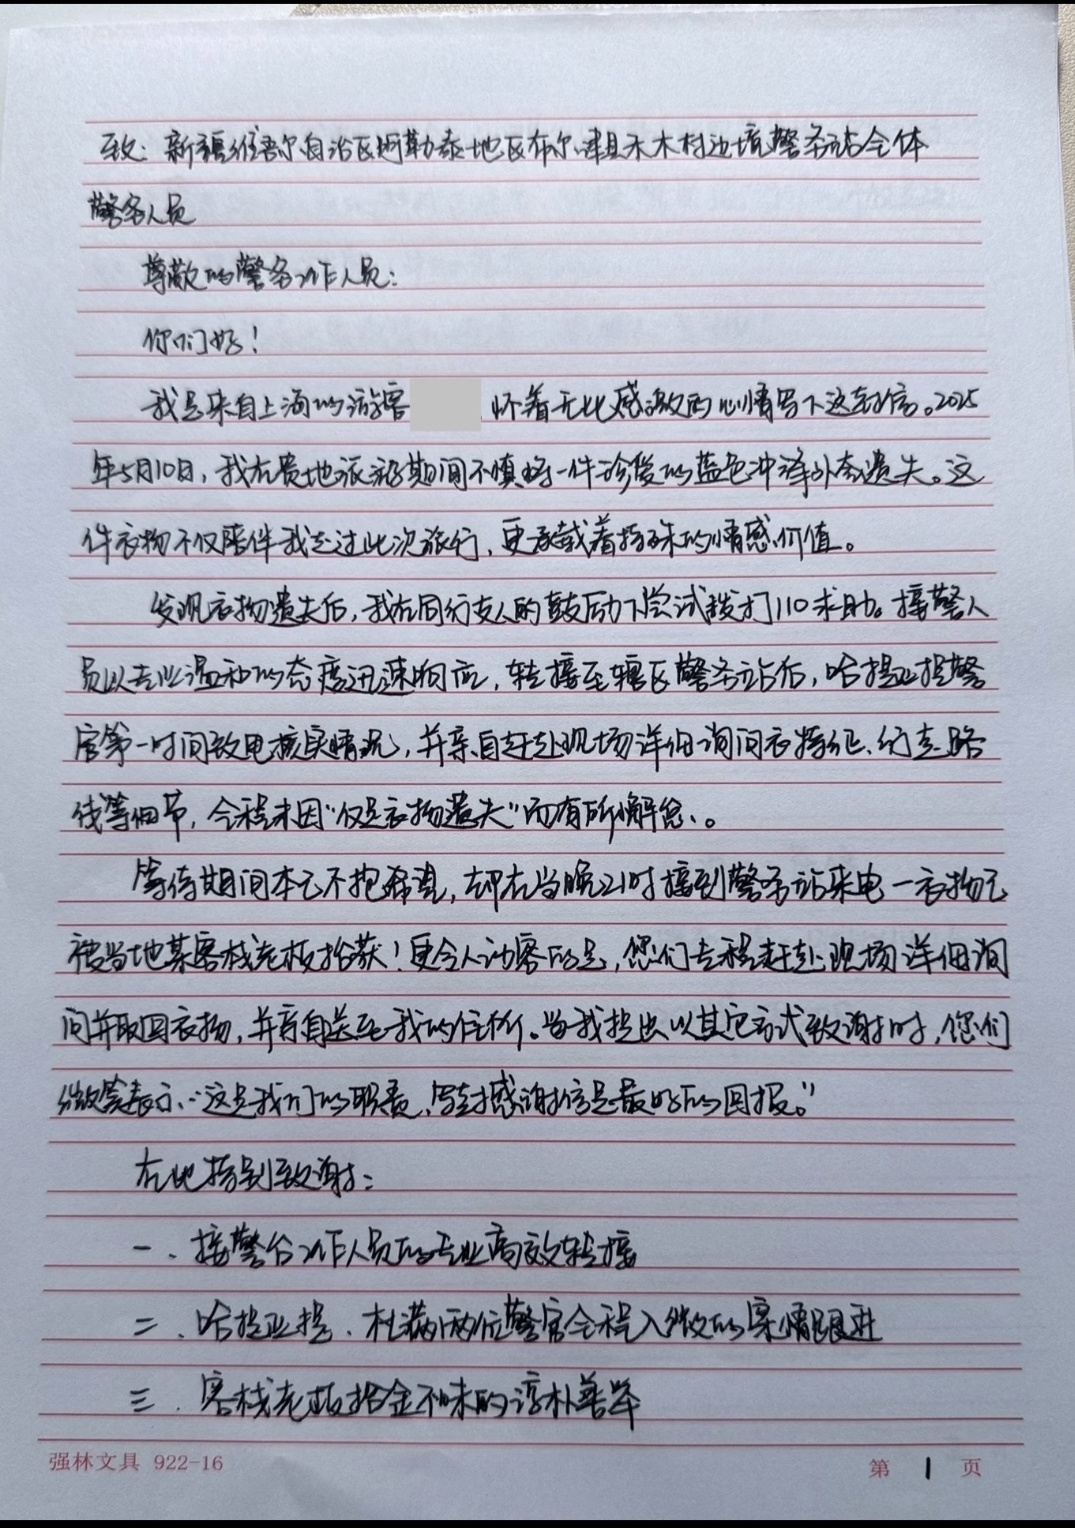 致：新疆维吾尔自治区阿勒泰地区布尔津县禾木村边境警务站全体
警务人员
尊敬的警务工作人员：
你们好！
我是来自上海的游客 怀着无比感激的心情写下这封信。2025
年5月10日，我在贵地旅游期间不慎将一件珍爱的蓝色冲锋外套遗失。这
件衣物不仅陪伴我走过此次旅行，更承载着特殊的情感价值。
发现衣物遗失后，我在同行友人的鼓励下尝试拨打110求助。接警人
员以专业温和的态度迅速响应，转接至辖区警务站后，哈提亚提警
官第一时间致电核实情况，并亲自赶赴现场详细询问衣物特征、行走路
线等细节，全程未因“仅是衣物遗失”而有所懈怠。
等待期间本已不抱希望，却在当晚21时接到警务站来电—衣物已
被当地某客栈老板拾获！更令人动容的是，您们专程赶赴现场详细询
问并取回衣物，并亲自送至我的住所。当我提出以其它方式致谢时，您们
微笑表示：“这是我们的职责，写封感谢信是最好的回报。”
在此特别致谢：
一、接警台工作人员的专业高效转接
二、哈提亚提、杜满两位警官全程入微的案情跟进
三、客栈老板拾金不昧的淳朴善举
强林文具 922-16
第 1 页